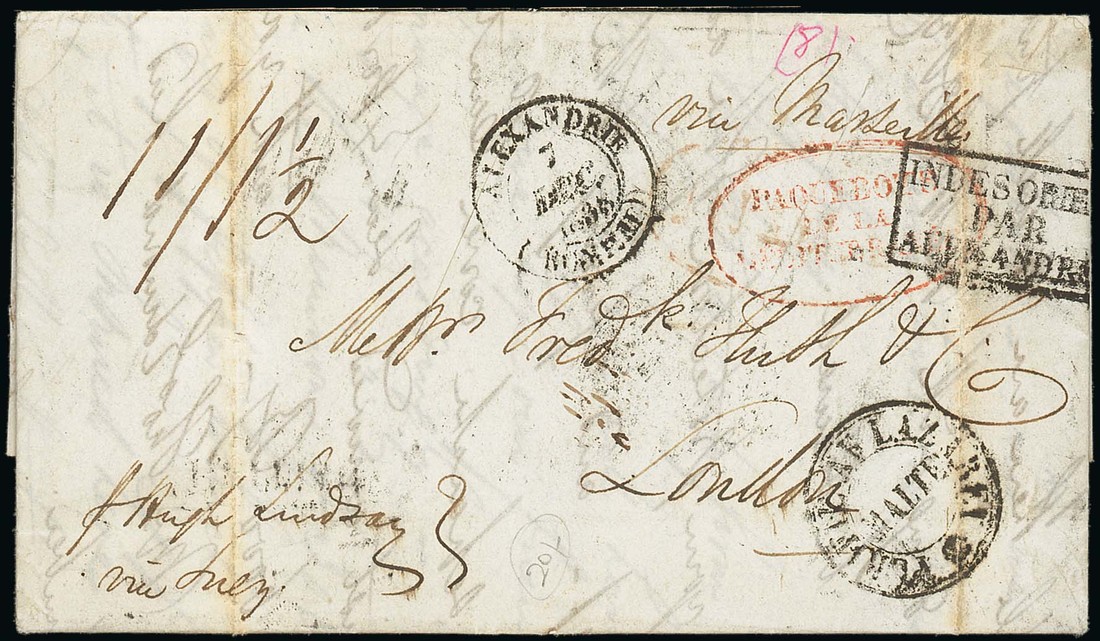 (8)
via Marseilles
11/11½
ALEXANDRIE
7
DEC.
(EGYPTE)
PAQUEBOTS
DE LA
MEDITERRANEE
INDES ORIE
PAR
ALEXANDR
Messrs. Fredk. Huth & Co
London
PURIFIÉ AU LAZARET
MALTE
p Hugh Lindsay
via Suez
20/